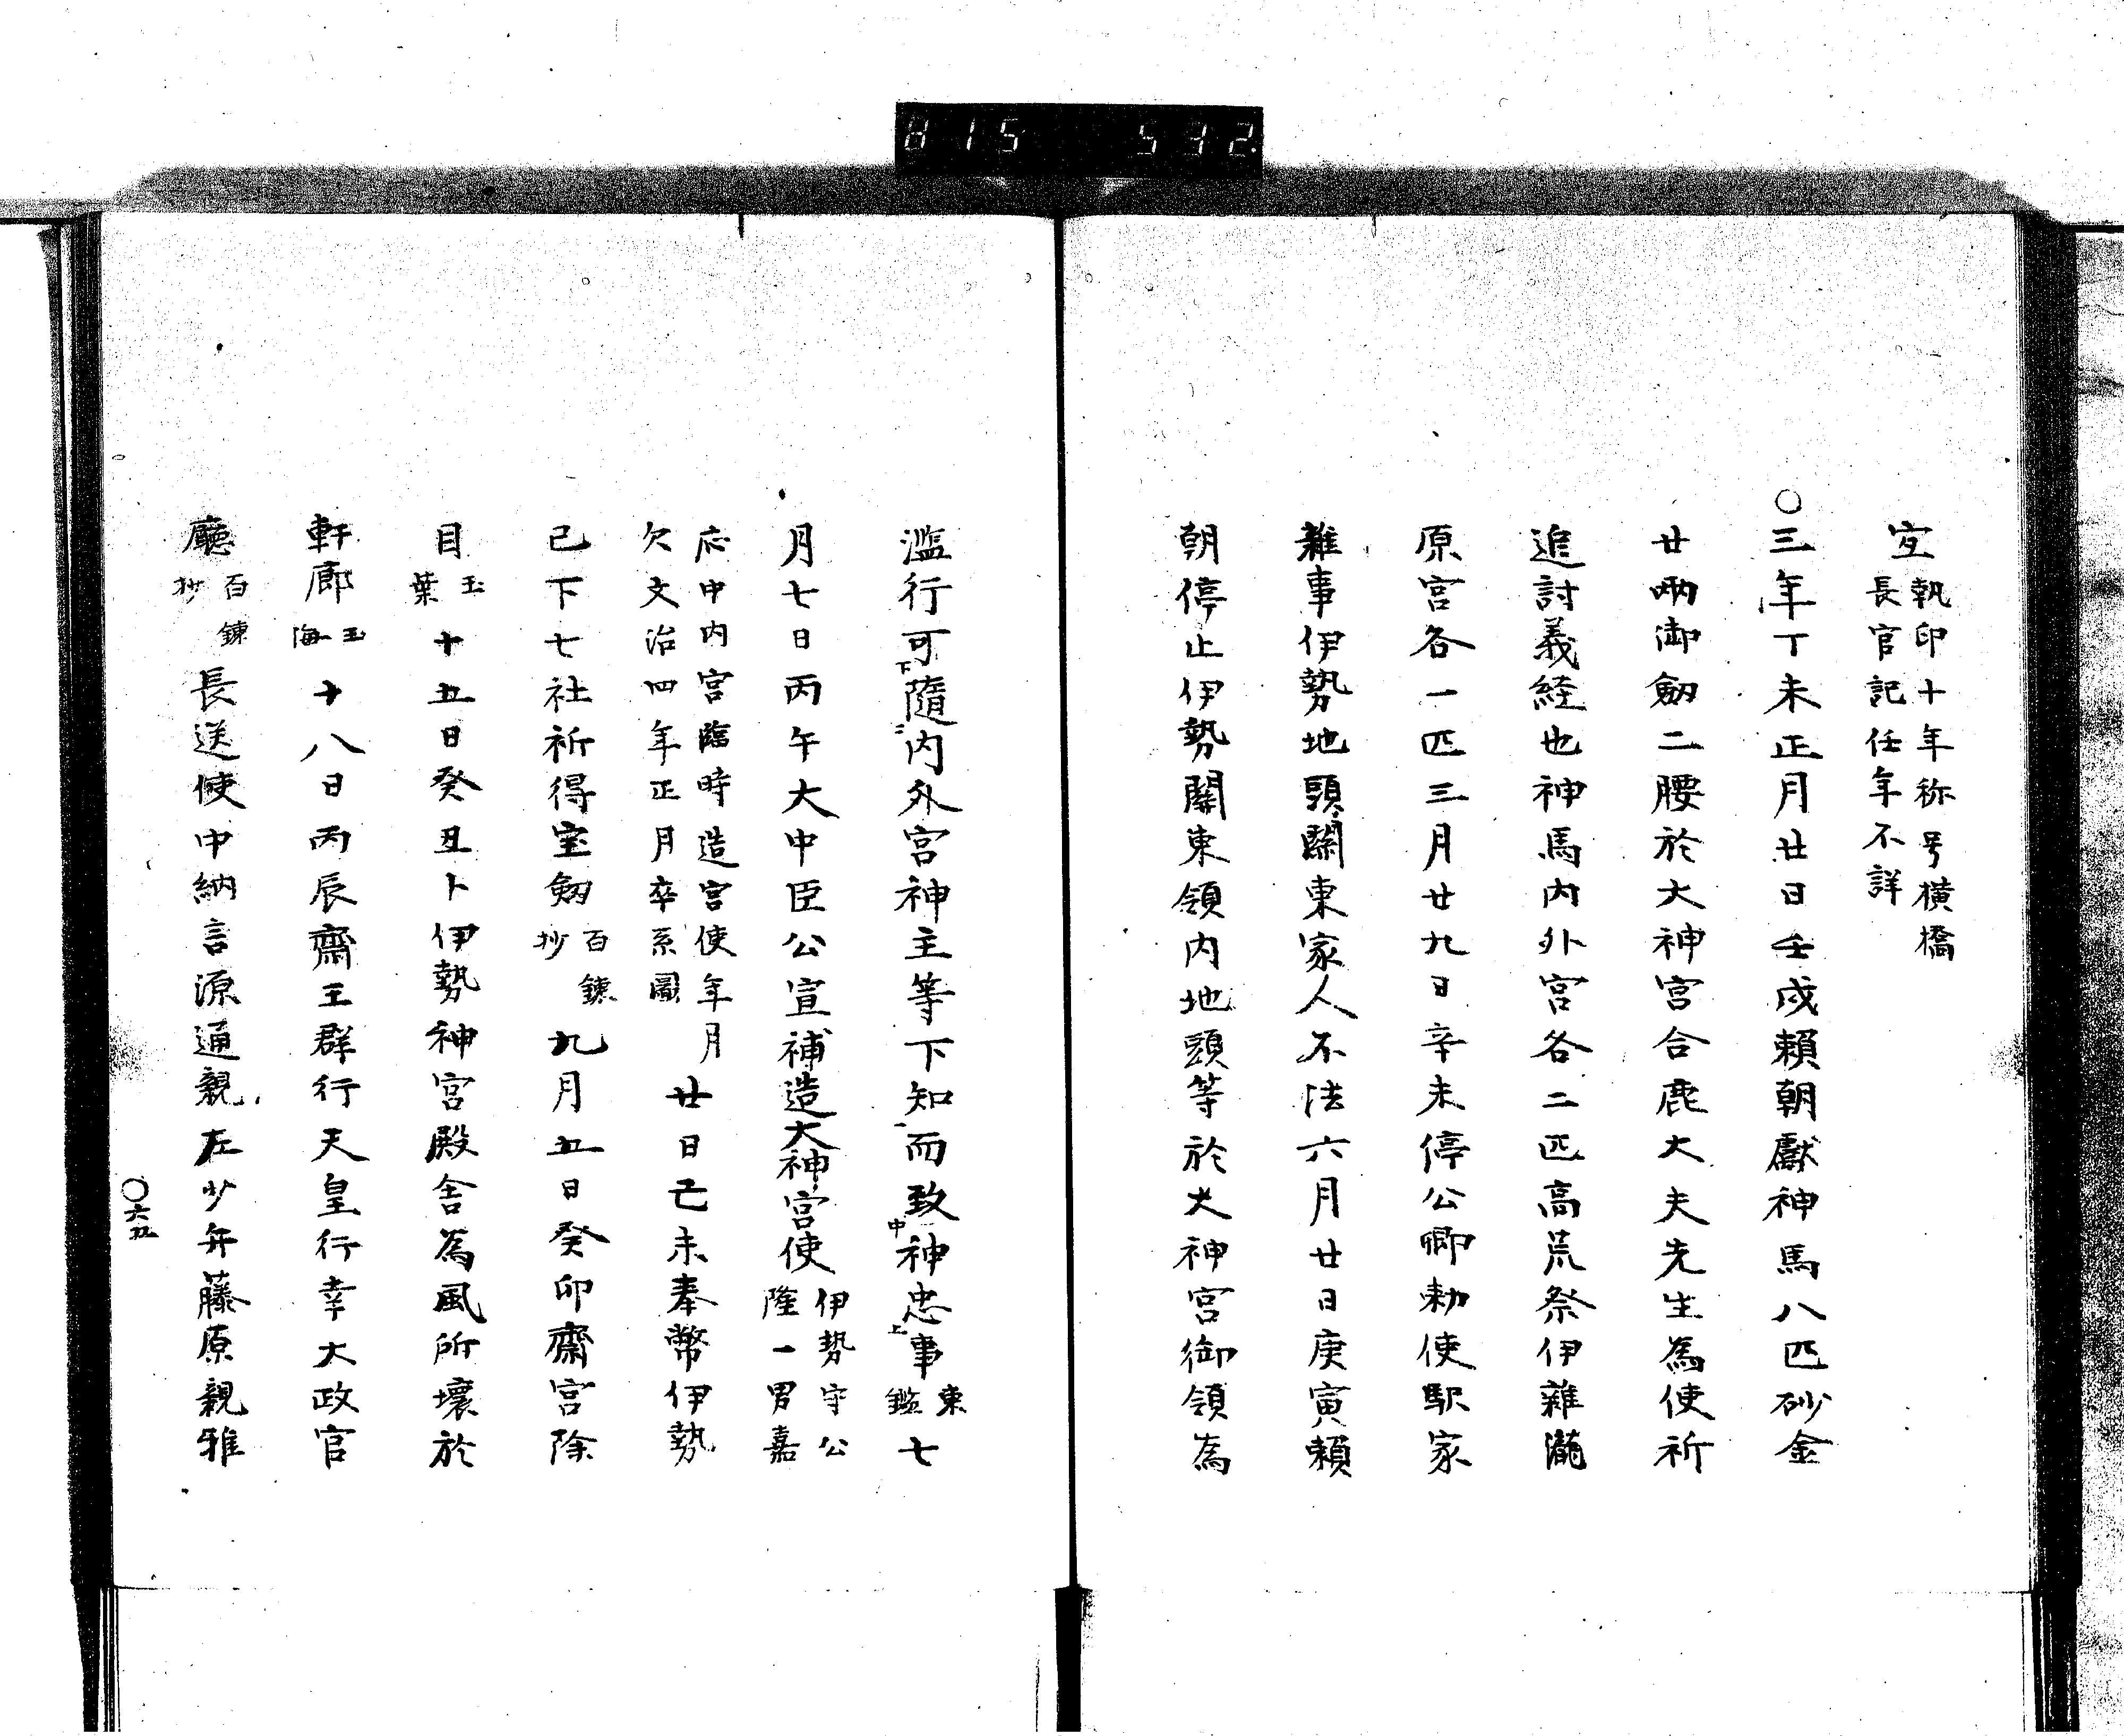 815 532
宐 執印十年称号横橋
長官記任年不詳
〇三年丁未正月廿日壬戌頼朝獻神馬八匹砂金
廿兩御劔二腰於大神宮合鹿大夫先生為使祈
追討義経也神馬内外宮各二匹高荒祭伊雜瀧
原宮各一匹三月廿九日辛未停公卿勅使駅家
雜事伊勢地頭関東家人不法六月廿日庚寅頼
朝停止伊勢関東領内地頭等於大神宮御領為
濫行可下随二内外宮神主等下知一而致中神忠上事 東鑑 七
月七日丙午大中臣公宣補造大神宮使 伊勢守公隆一男嘉
応中内宮臨時造宮使年月
欠文治四年正月卒系圖 廿日己未奉幣伊勢
已下七社祈得宝劔 百錬抄 九月五日癸卯齋宮除
目 玉葉 十五日癸丑卜伊勢神宮殿舍為風所壞於
軒廊 玉海 十八日丙辰齋王群行天皇行幸大政官
廳 百錬抄 長送使中納言源通親左少弁藤原親雅
〇六九